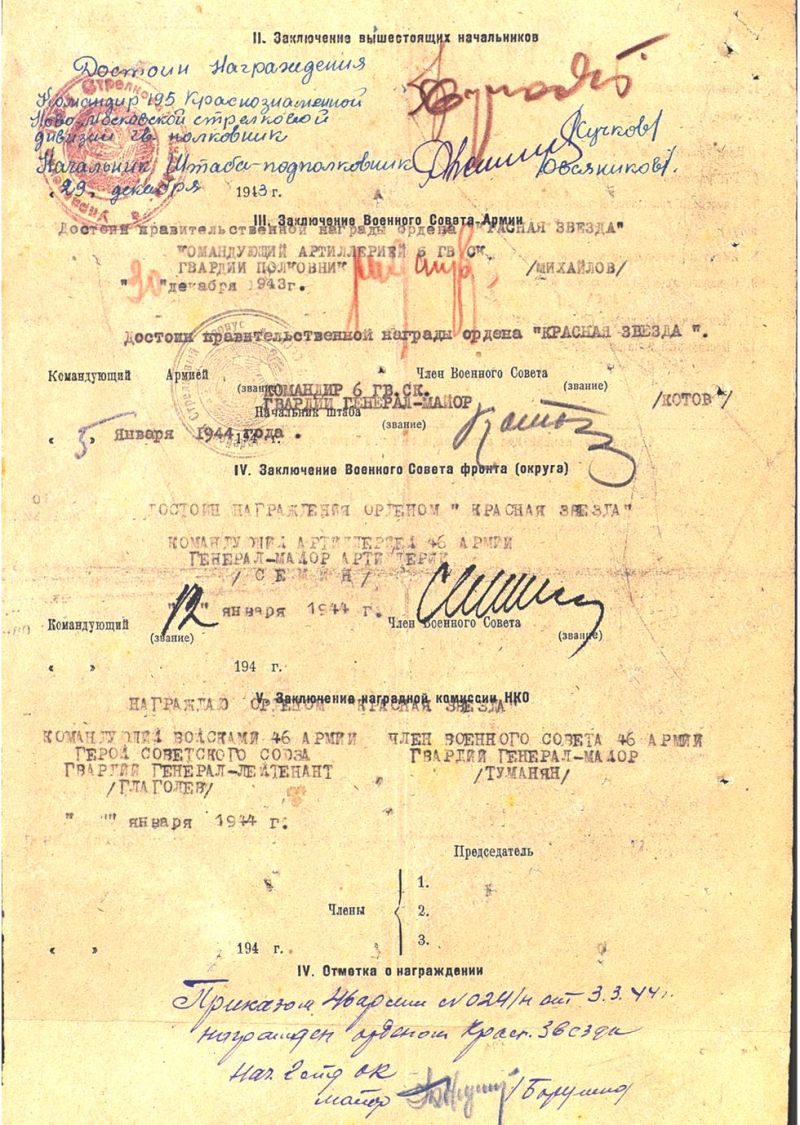 II. Заключение вышестоящих начальников
Достоин Награждения
Командир 195 Краснознаменной
Ново-московской стрелковой
дивизии гв. полковник /Сучков/
Начальник Штаба-подполковник /Овсяников/.
"29" декабря 1943 г.
III. Заключение Военного Совета Армии
Достоин правительственной награды ордена "КРАСНАЯ ЗВЕЗДА"
КОМАНДУЮЩИЙ АРТИЛЛЕРИЕЙ 6 ГВ СК.
ГВАРДИИ ПОЛКОВНИК /МИХАЙЛОВ/
"30" декабря 1943г.
Достоин правительственной награды ордена "КРАСНАЯ ЗВЕЗДА".
Командующий Армией Член Военного Совета
(звание) КОМАНДИР 6 ГВ.СК. (звание)
ГВАРДИИ ГЕНЕРАЛ-МАЙОР /КОТОВ/
Начальник штаба (звание)
"5" Января 1944 года.
IV. Заключение Военного Совета фронта (округа)
ДОСТОИН НАГРАЖДЕНИЯ ОРДЕНОМ "КРАСНАЯ ЗВЕЗДА"
КОМАНДУЮЩИЙ АРТИЛЛЕРИЕЙ 46 АРМИИ
ГЕНЕРАЛ-МАЙОР АРТИЛЛЕРИИ
/СЕМИН/
"12" января 1944 г.
Командующий Член Военного Совета
(звание) (звание)
« » 194 г.
V. Заключение наградной комиссии НКО
НАГРАЖДАЮ ОРДЕНОМ "КРАСНАЯ ЗВЕЗДА"
КОМАНДУЮЩИЙ ВОЙСКАМИ 46 АРМИИ ЧЛЕН ВОЕННОГО СОВЕТА 46 АРМИИ
ГЕРОЙ СОВЕТСКОГО СОЮЗА ГВАРДИИ ГЕНЕРАЛ-МАЙОР
ГВАРДИИ ГЕНЕРАЛ-ЛЕЙТЕНАНТ /ТУМАНЯН/
/ГЛАГОЛЕВ/
" " января 1944 г.
Председатель
1.
Члены 2.
3.
« » 194 г.
IV. Отметка о награждении
Приказом 46 армии № 024/н от 3.3.44 г.
награжден орденом Красн. Звезда
Нач. 2 отд ОК
майор